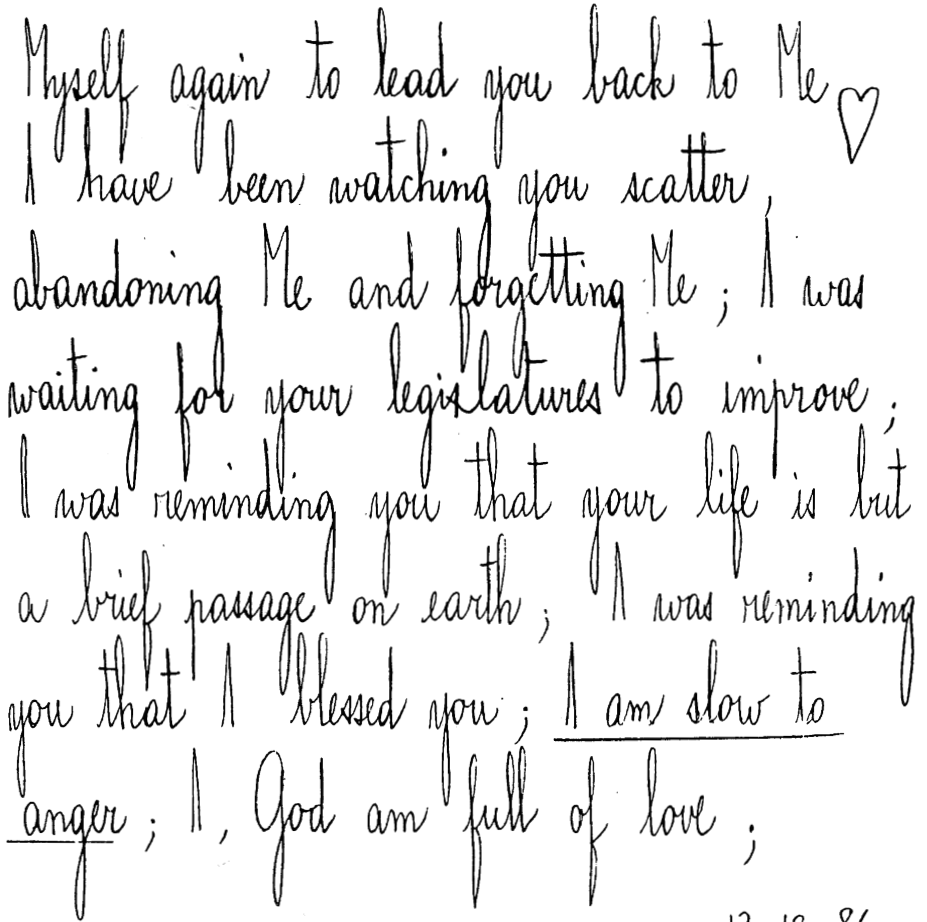 Myself again to lead you back to Me ♡
I have been watching you scatter,
abandoning Me and forgetting Me ; I was
waiting for your legislatures to improve ;
I was reminding you that your life is but
a brief passage on earth ; I was reminding
you that I blessed you ; I am slow to
anger ; I, God am full of love ;